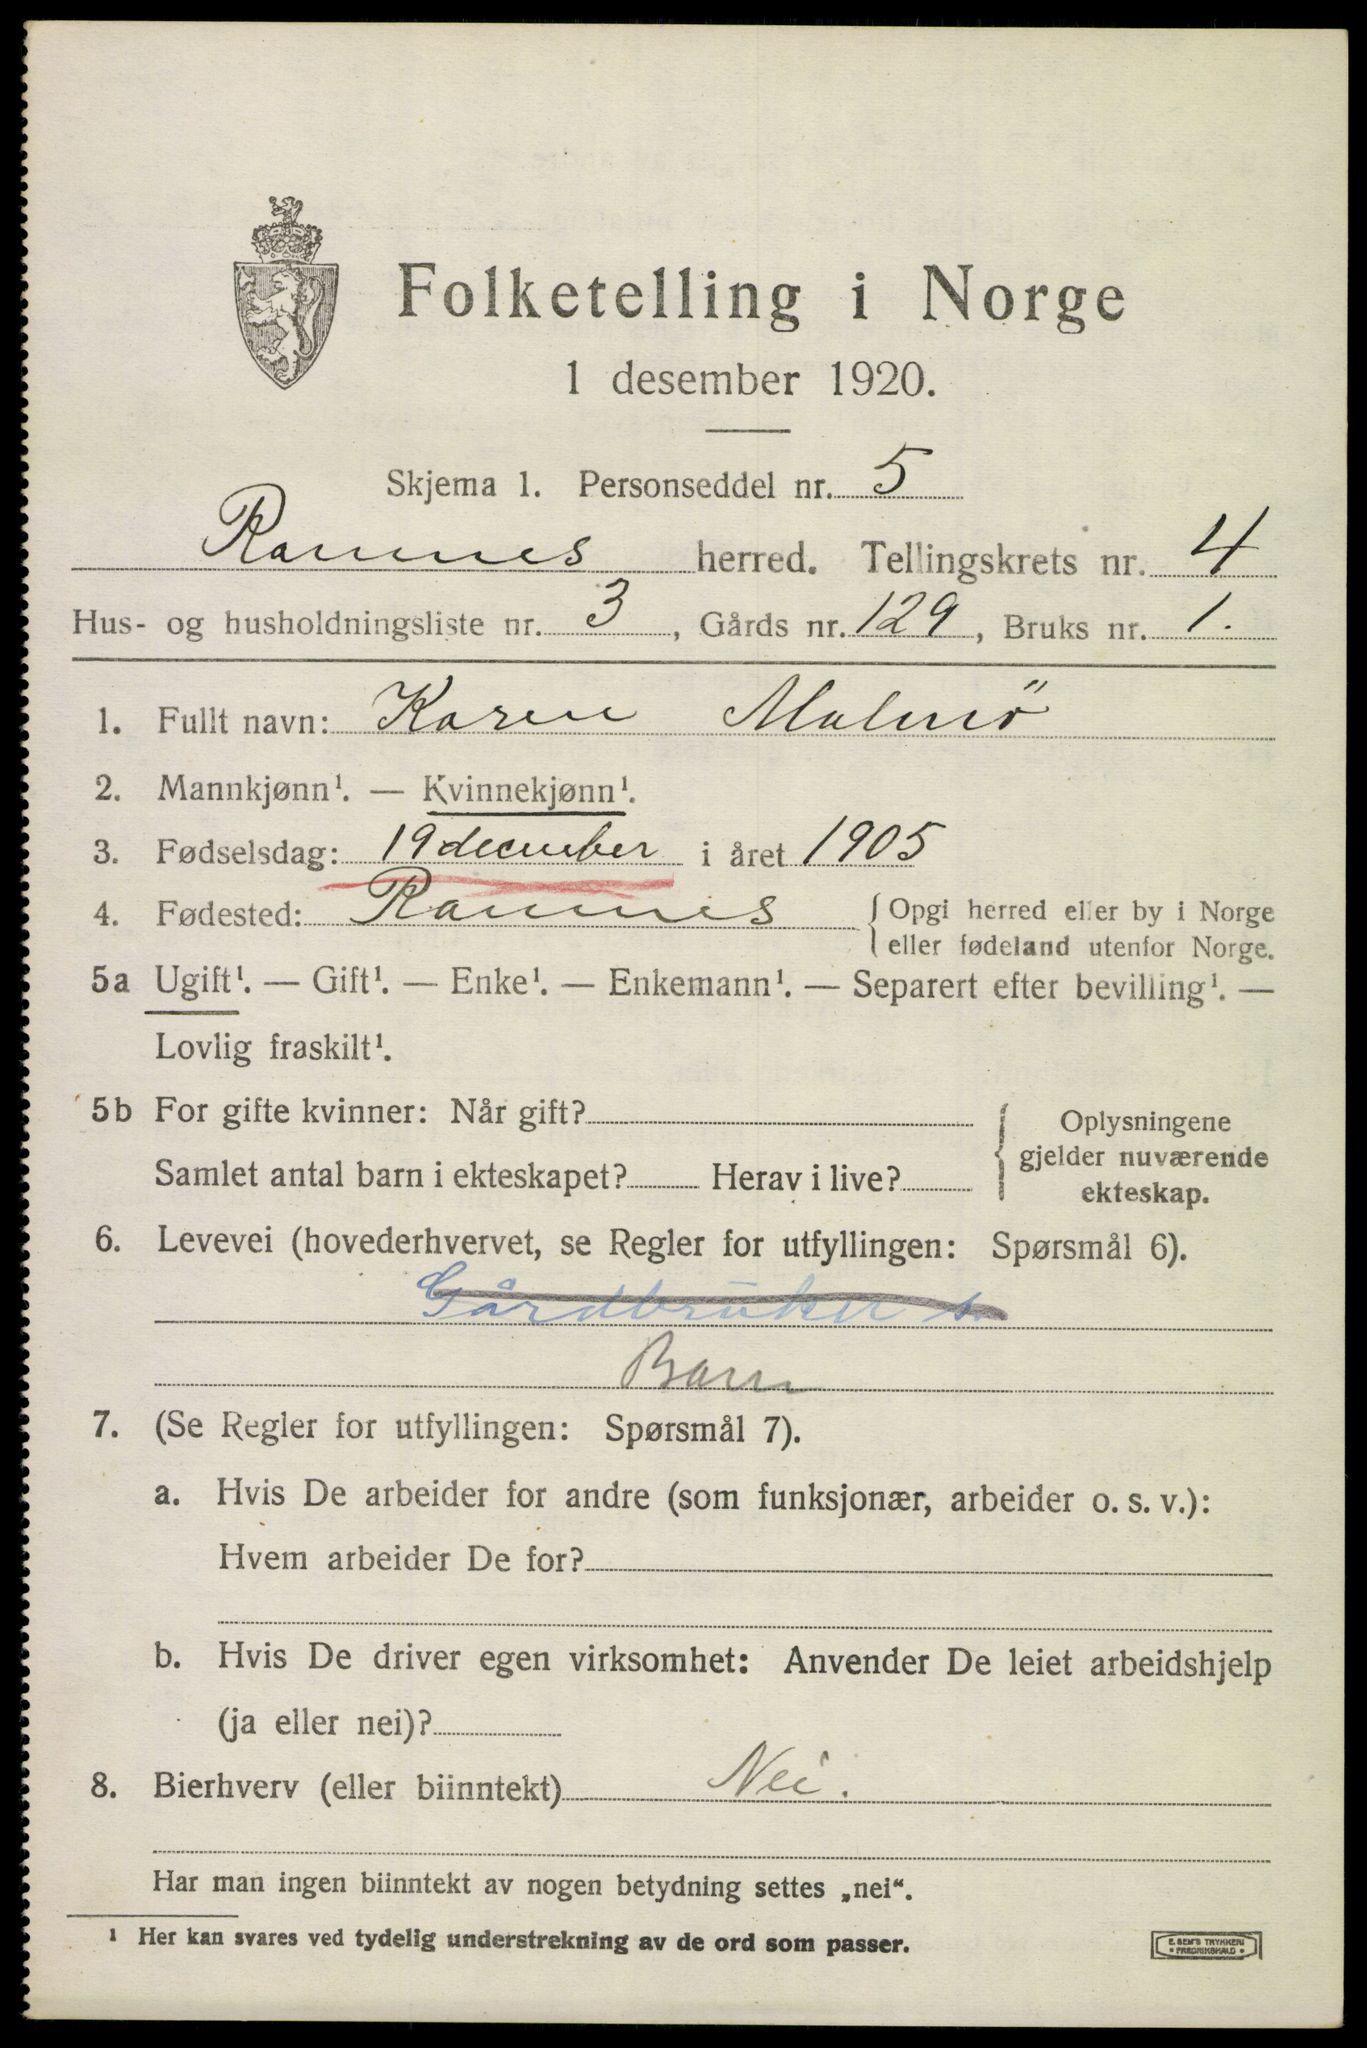 Folketelling i Norge
1 desember 1920.
Skjema 1. Personseddel nr. 5
Ramnes herred. Tellingskrets nr. 4
Hus- og husholdningsliste nr. 3, Gårds nr. 129, Bruks nr. 1.
1. Fullt navn: Karen Malmö
2. Mannkjønn¹. — Kvinnekjønn¹.
3. Fødselsdag: 19 december i året 1905
4. Fødested: Ramnes { Opgi herred eller by i Norge
eller fødeland utenfor Norge.
5a Ugift¹. — Gift¹. — Enke¹. — Enkemann¹. — Separert efter bevilling¹. —
Lovlig fraskilt¹.
5b For gifte kvinner: Når gift? { Oplysningene
gjelder nuværende
Samlet antal barn i ekteskapet? Herav i live? ekteskap.
6. Levevei (hovederhvervet, se Regler for utfyllingen: Spørsmål 6).
Gårdbruker s.
Barn
7. (Se Regler for utfyllingen: Spørsmål 7).
a. Hvis De arbeider for andre (som funksjonær, arbeider o. s. v.):
Hvem arbeider De for?
b. Hvis De driver egen virksomhet: Anvender De leiet arbeidshjelp
(ja eller nei)?
8. Bierhverv (eller biinntekt) Nei.
Har man ingen biinntekt av nogen betydning settes „nei“.
¹ Her kan svares ved tydelig understrekning av de ord som passer.
E. SEM'S TRYKKERI
• FREDRIKSHALD •